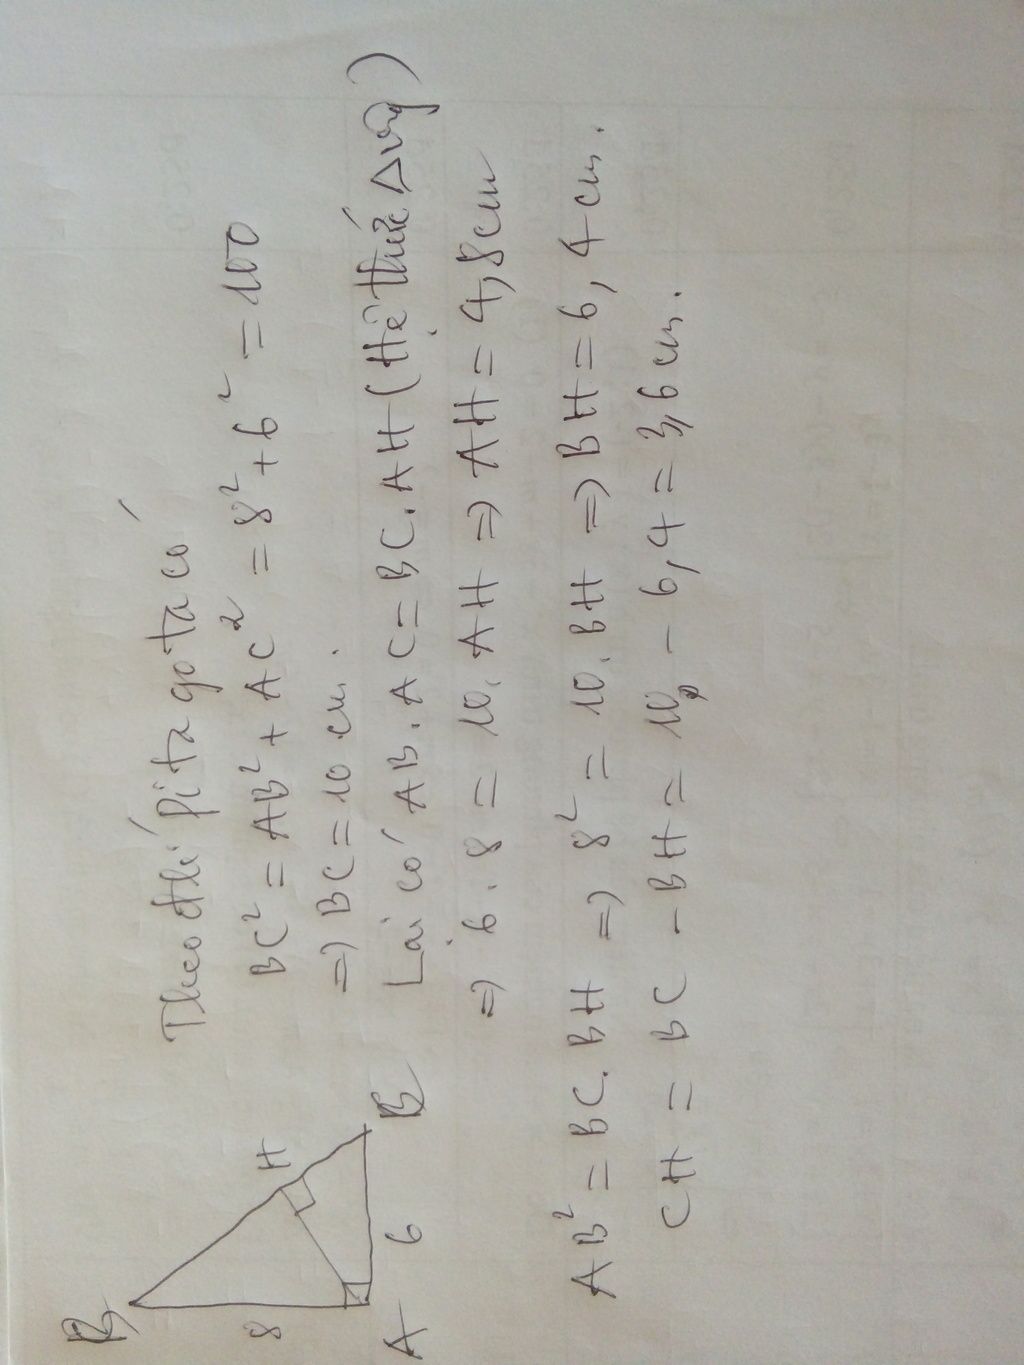 B
8
H
A
6
B
Theo đlí pitago ta có
BC² = AB² + AC² = 8² + 6² = 100
=> BC = 10 cm.
Lại có AB . AC = BC . AH (Hệ thức Δ vg)
=> 6 . 8 = 10 . AH => AH = 4,8 cm
AB² = BC . BH => 8² = 10 . BH => BH = 6,4 cm.
CH = BC - BH = 10 - 6,4 = 3,6 cm.